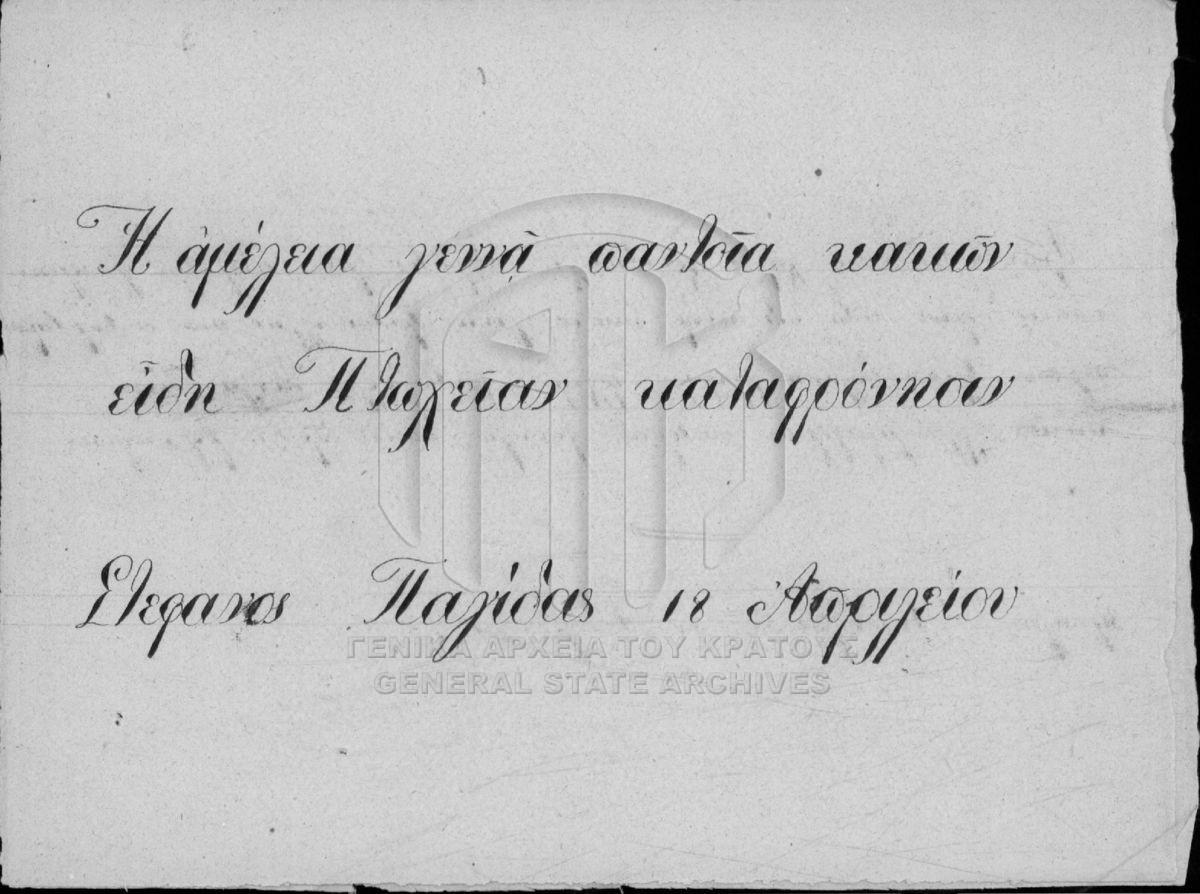 Ἡ ἀμέλεια γεννᾷ παντοῖα κακῶν
εἴδη Πτωχεῖαν καταφρόνησιν
Στεφανος Παγίδας 18 Απριλείου
ΓΕΝΙΚΑ ΑΡΧΕΙΑ ΤΟΥ ΚΡΑΤΟΥΣ
GENERAL STATE ARCHIVES